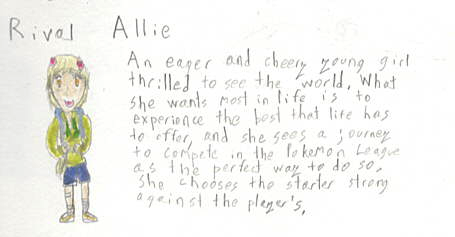 Rival Allie
An eager and cheery young girl
thrilled to see the world. What
she wants most in life is to
experience the best that life has
to offer, and she sees a journey
to compete in the Pokemon League
as the perfect way to do so.
She chooses the starter strong
against the player's.